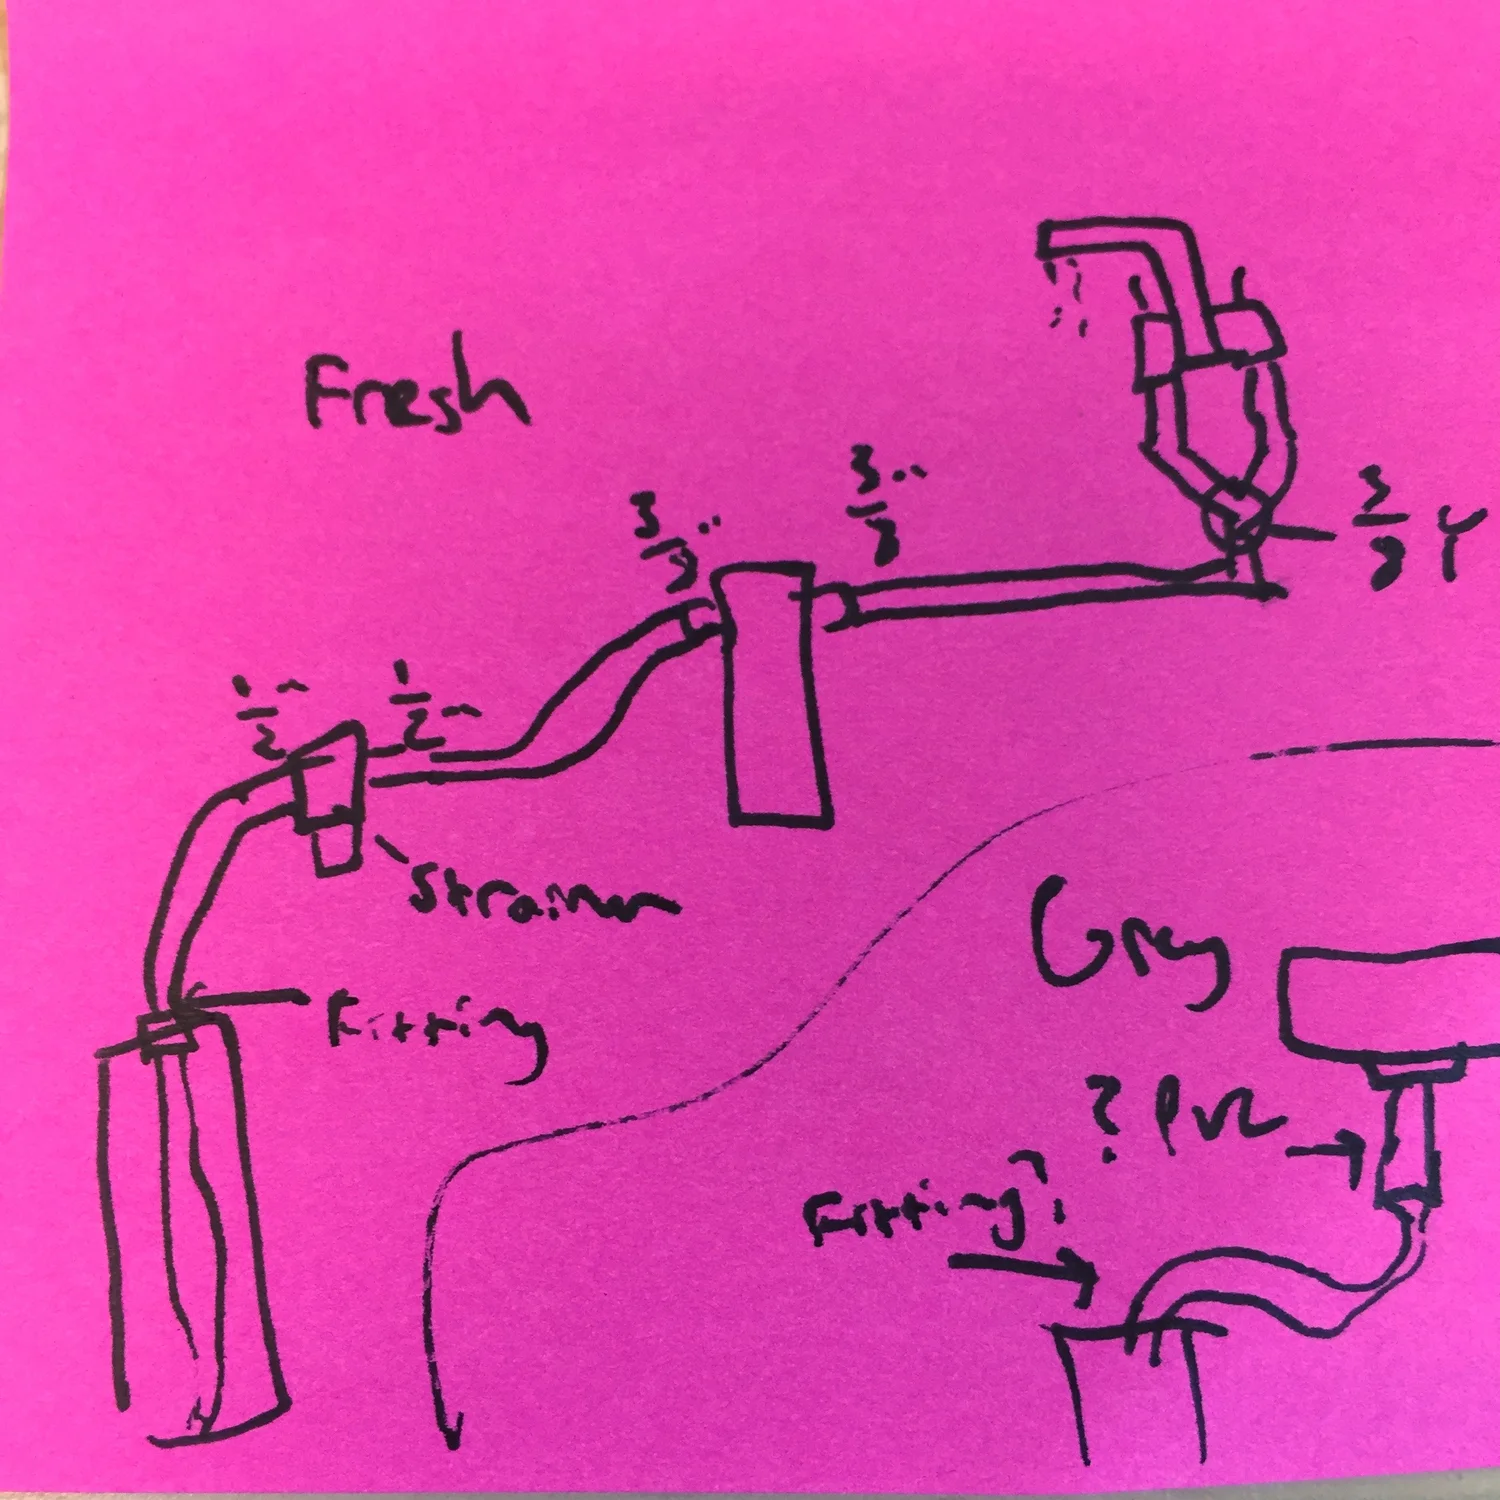 Fresh
3/8"
3/8"
3/8 Y
1/2"
1/2"
Strainer
Fitting
Grey
? PVC
Fitting?